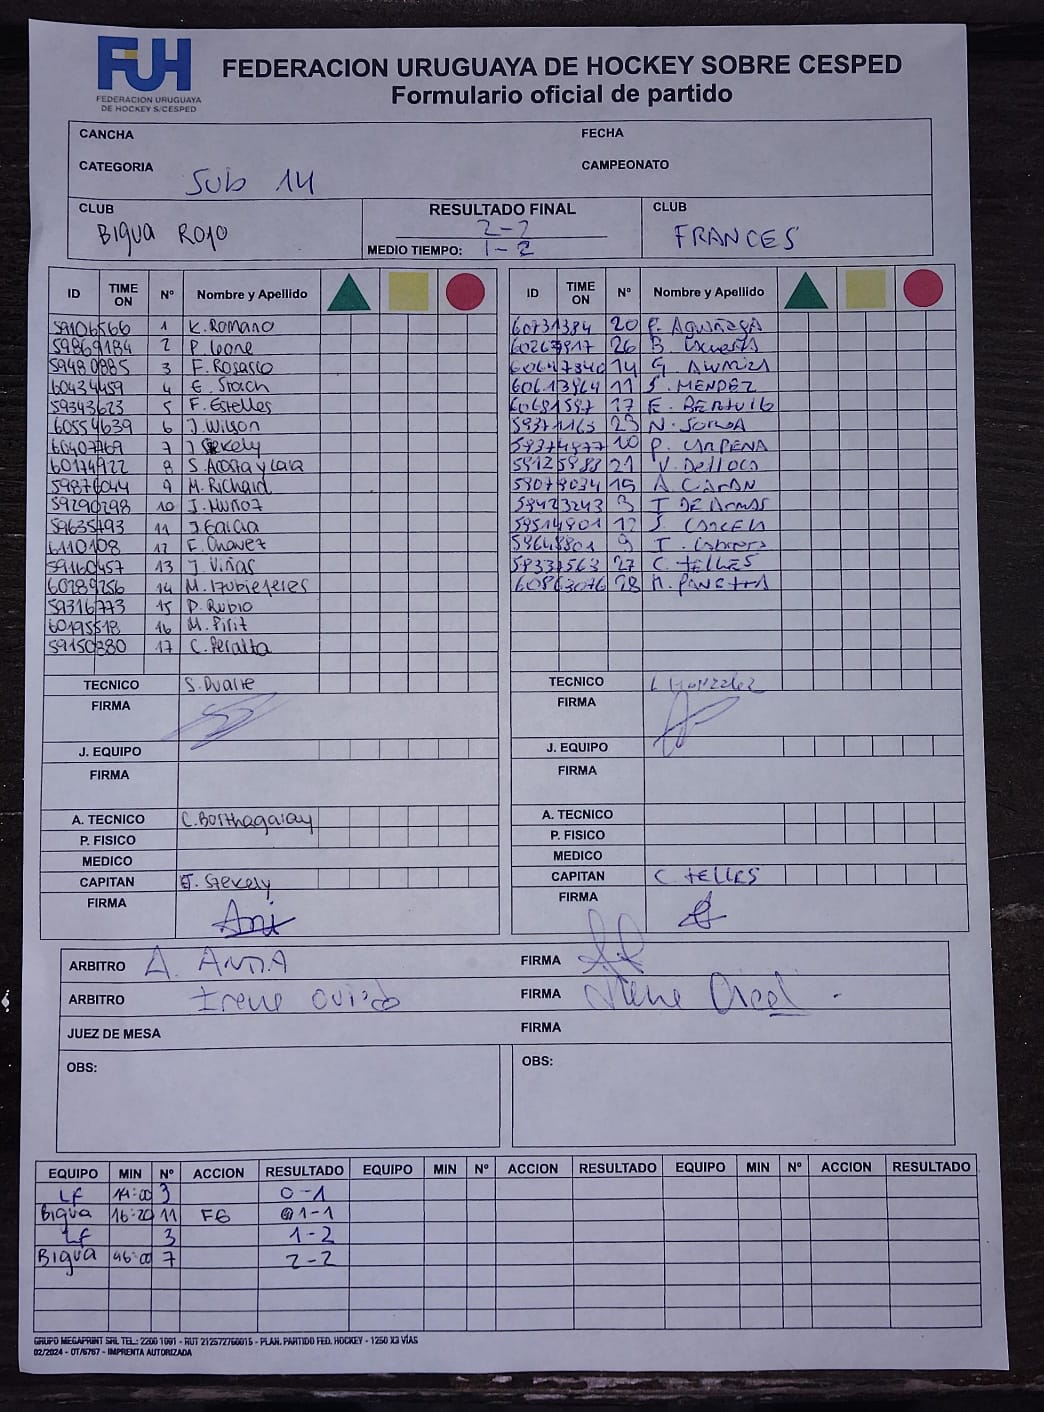 FUH
FEDERACION URUGUAYA
DE HOCKEY S/CESPED
FEDERACION URUGUAYA DE HOCKEY SOBRE CESPED
Formulario oficial de partido
CANCHA FECHA
CATEGORIA Sub 14 CAMPEONATO
CLUB BIGUA ROJO RESULTADO FINAL 2-2 CLUB FRANCES
MEDIO TIEMPO: 1-2
ID TIME ON Nº Nombre y Apellido ID TIME ON Nº Nombre y Apellido
59106566 1 K. Romano 60731384 20
59869184 2 P. Leone 26 B.
59480885 3 F. Rosasco 14 G.
60434459 4 E. 11 S. MENDEZ
59343623 5 F. Estelles 17 E.
60554639 6 J. Wilson 23 N.
60407769 7 J 10 P. CARPENA
60174922 8 S. Acosta y Lara 59125988 21 V. Delloca
59876044 9 M. Richard 59079034 15 A.
59290298 10 J. Muñoz 59423243 3 T DE ARMAS
59635793 11 J Garcia 59514901 12 S. CANCELA
6110108 12 F. Chavez 9 T. Cabrera
59160457 13 J. Viñas 59337563 27 C. TELLES
60289256 14 M. 60863076 28
59316773 15 P. Rubio
60195518 16 M. Pirit
59150380 17 C. Peralta
TECNICO S. Duarte TECNICO L Gonzalez
FIRMA FIRMA
J. EQUIPO J. EQUIPO
FIRMA FIRMA
A. TECNICO C. Borthagaray A. TECNICO
P. FISICO P. FISICO
MEDICO MEDICO
CAPITAN J. Szekely CAPITAN C. TELLES
FIRMA FIRMA
ARBITRO A. FIRMA
ARBITRO Irene Oviedo FIRMA Irene
JUEZ DE MESA FIRMA
OBS: OBS:
EQUIPO MIN Nº ACCION RESULTADO EQUIPO MIN Nº ACCION RESULTADO EQUIPO MIN Nº ACCION RESULTADO
LF 14:00 3 0-1
Bigua 16:20 11 FG 1-1
LF 3 1-2
Bigua 46:00 7 2-2
GRUPO MEGAPRINT SRL TEL.: 2200 1091 - RUT 212572760015 - PLAN. PARTIDO FED. HOCKEY - 1250 X3 VÍAS
02/2024 - OT/6767 - IMPRENTA AUTORIZADA